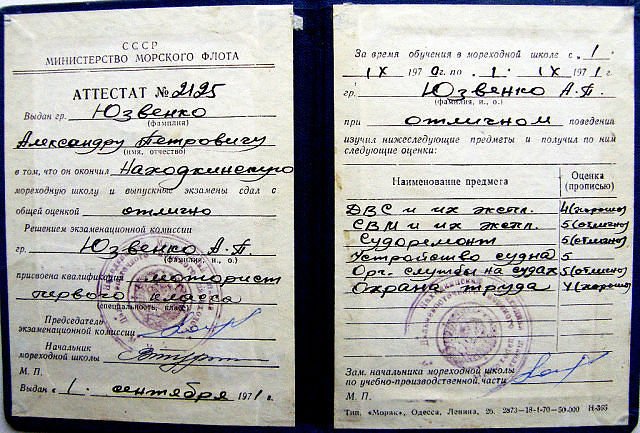 СССР
МИНИСТЕРСТВО МОРСКОГО ФЛОТА
АТТЕСТАТ № 2125
Выдан гр. Юзвенко
(фамилия)
Александру Петровичу
(имя, отчество)
в том, что он окончил Находкинскую
мореходную школу и выпускные экзамены сдал с
общей оценкой отлично
Решением экзаменационной комиссии
гр. Юзвенко А.П.
(фамилия, и., о.)
присвоена квалификация моторист
первого класса
(специальность, класс)
Председатель
экзаменационной комиссии
Начальник
мореходной школы
М. П.
Выдан « 1 . сентября 1971 г.
За время обучения в мореходной школе с „ 1 .
IX 1970 г. по „ 1 . IX 1971 г.
гр. Юзвенко А.П.
(фамилия, и., о.)
при отличном поведении
изучил нижеследующие предметы и получил по ним
следующие оценки:
Наименование предмета Оценка (прописью)
ДВС и их экспл. 4 (хорошо)
СВМ и их экспл. 5 (отлично)
Судоремонт 5 (отлично)
Устройство судна 5
Орг. службы на судах 5 (отлично)
Охрана труда 4 (хорошо)
Зам. начальника мореходной школы
по учебно-производственной части
М. П.
Тип. «Моряк», Одесса, Ленина, 26. 2873—18-1-70—50-000 Н-365